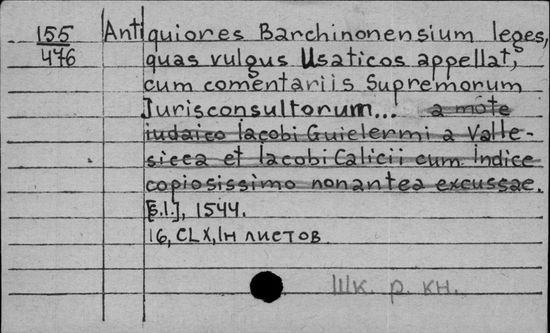 155 Antiquiores Barchinonensium leges,
476 quas vulgus Usaticos appellat,
cum comentariis Supremorum
Jurisconsultorum... a mote
iudaico Iacobi Guielermi a Valle-
sicca et Iacobi Calicii cum indice
copiosissimo nonantea excussae.
[S.l.], 1544.
16, CLX, 1н листов
Шк. р. кн.